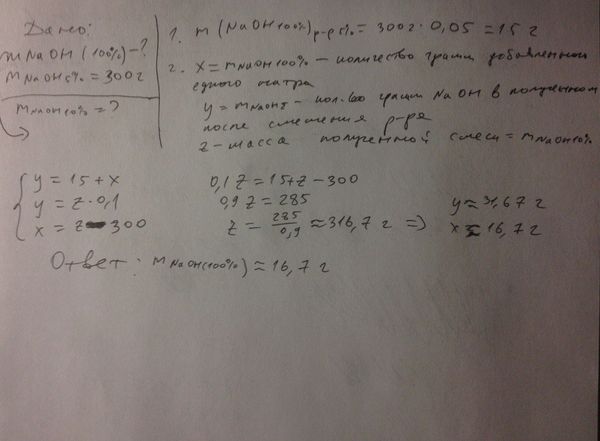 Дано:
m NaOH (100%) -?
m NaOH 5% = 300 г
m NaOH 10% = ?
1. m (NaOH 100%) р-р 5% = 300 г · 0,05 = 15 г
2. x = m NaOH 100% - количество грамм добавленного
едкого натра
y = m NaOH - кол-во грамм NaOH в полученном
после смешения р-ре
z - масса полученной смеси = m NaOH 10%
y = 15 + x
y = z · 0,1
x = z - 300
0,1 z = 15 + z - 300
0,9 z = 285
z = 285/0,9 ≈ 316,7 г =>
y ≈ 31,67 г
x ≈ 16,7 г
Ответ: m NaOH (100%) ≈ 16,7 г